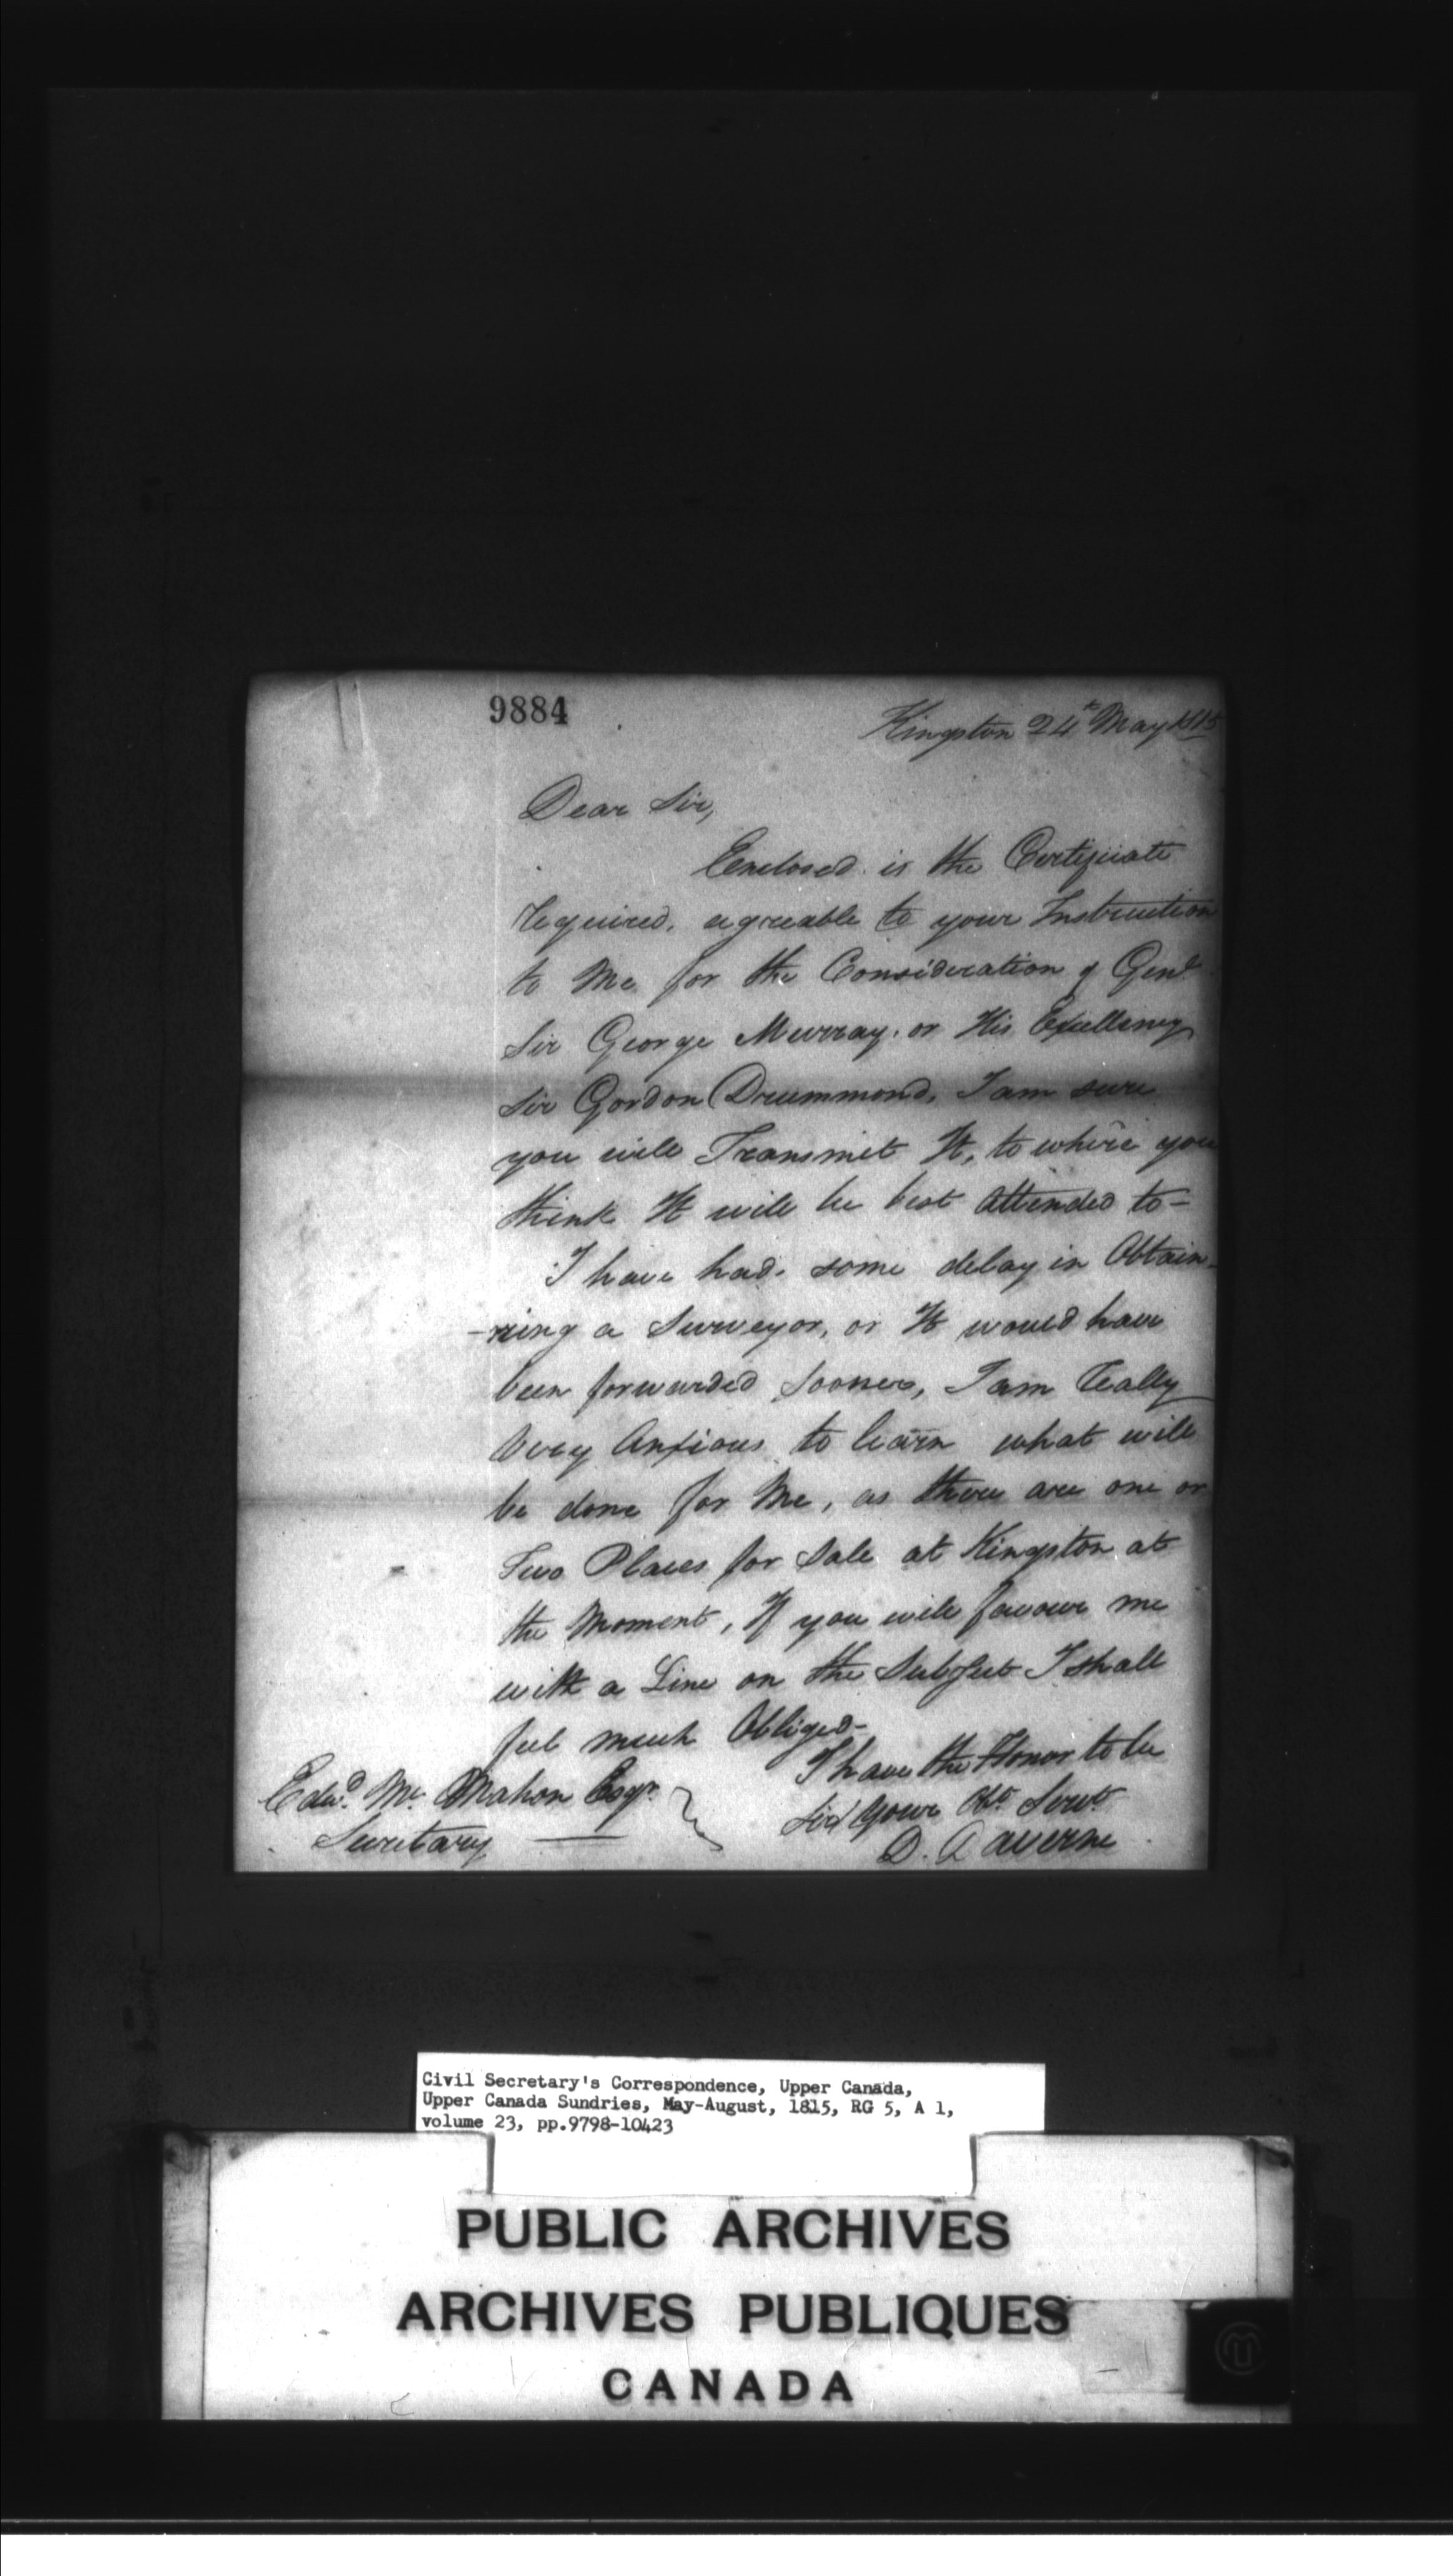 9884
Kingston 24th May 1815
Dear Sir,
Enclosed is the Certificate
required, agreable to your Instruction
to Me for the Consideration of Genl
Sir George Murray. or His Excellency
Sir Gordon Drummond, I am sure
you will Transmit It, to where you
think It will be best attended to -
I have had some delay in Obtain-
-ning a Surveyor, or It would have
been forwarded sooner, I am really
Very Anxious to learn what will
be done for Me, as there are one or
Two Places for Sale at Kingston at
the Moment, If you will favour me
with a Line on the Subject I shall
feel much Obliged -
I have the Honor to be
Sir Your Obt Servt
D.
Edwd Mc Mahon Esqr
Secretary
Civil Secretary's Correspondence, Upper Canada,
Upper Canada Sundries, May-August, 1815, RG 5, A 1,
volume 23, pp.9798-10423
PUBLIC ARCHIVES
ARCHIVES PUBLIQUES
CANADA